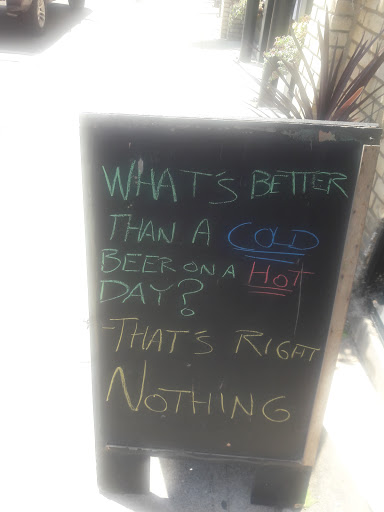 WHAT'S BETTER
THAN A COLD
BEER ON A HOT
DAY?
-THAT'S RIGHT
NOTHING